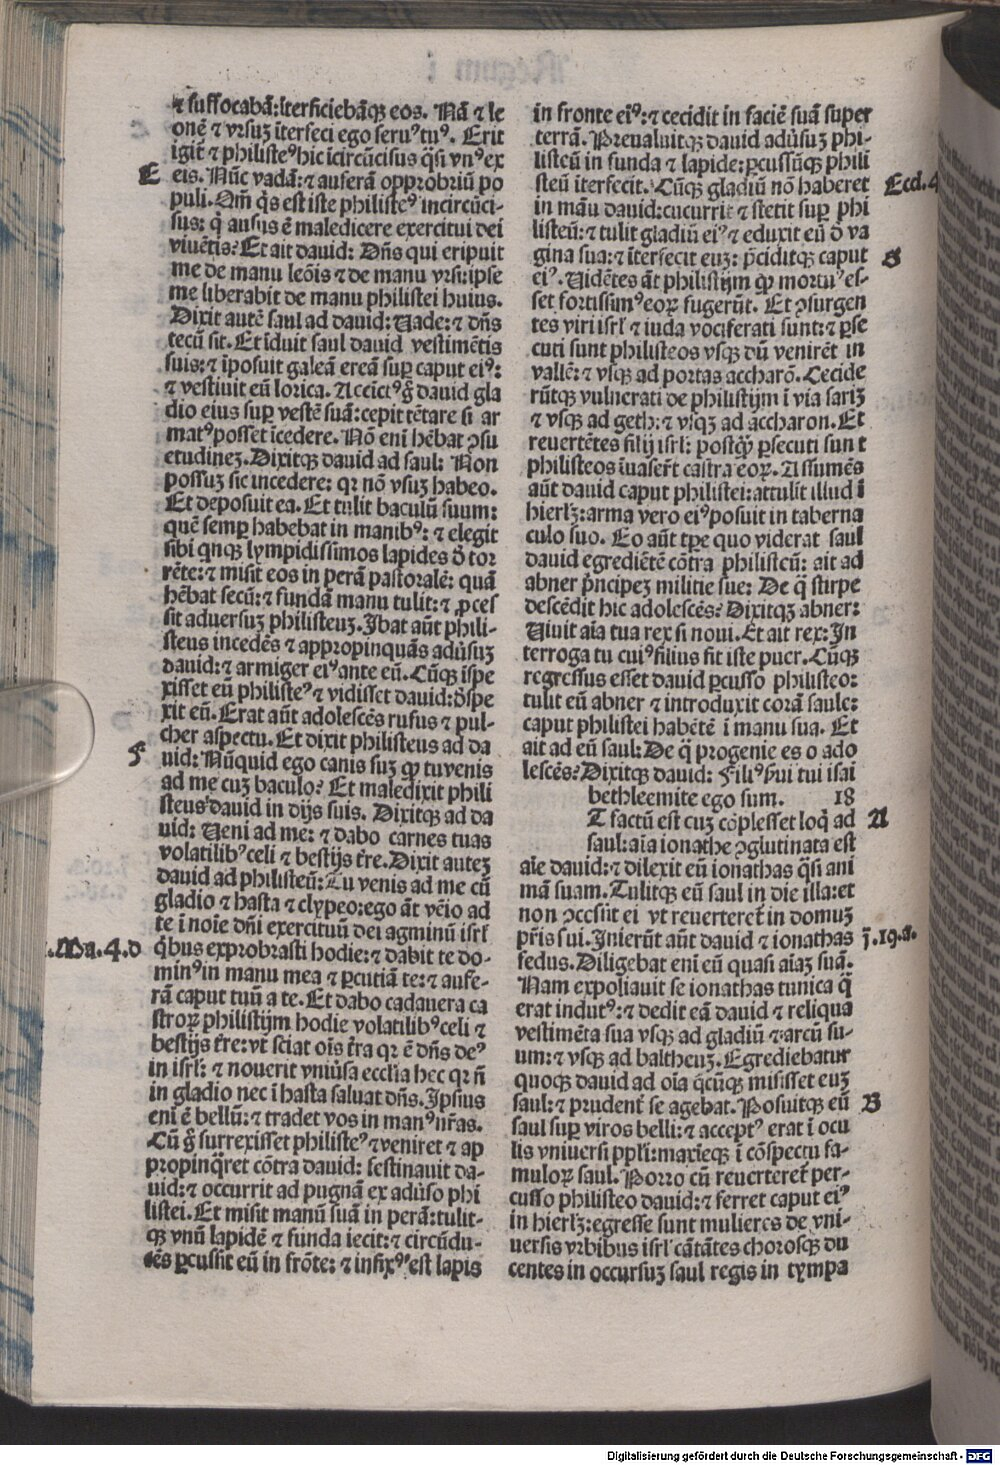 ⁊ suffocabā:īterficiebāqꝫ eos. Nā ⁊ le
onē ⁊ vrsuꝫ īterfeci ego seruꝰ tuꝰ. Erit
igit̃ ⁊ philisteꝰ hic īcircūcisus q̄si vnꝰ ex
E
eis. Nūc vadā: ⁊ auferā opprobriū po
puli. Qm̄ q̇s est iste philisteꝰ incircūci-
sus: q̇ ausus ē maledicere exercitui dei
viuētis? Et ait dauid: Dn̄s qui eripuit
me de manu leōis ⁊ de manu vrsi: ipse
me liberabit de manu philistei huius.
Dixit autē saul ad dauid: Uade: ⁊ dn̄s
tecū sit. Et īduit saul dauid vestimētis
suis: ⁊ īposuit galeā ereā suꝑ caput eiꝰ:
⁊ vestiuit eū lorica. Accīctꝰ g̊ dauid gla
dio eius suꝑ vestē suā: cepit tētare si ar
matꝰ posset īcedere. Nō eni hēbat ꝯsu
etudineꝫ. Dixitqꝫ dauid ad saul: Non
possuꝫ sic incedere: qꝛ nō vsuꝫ habeo.
Et deposuit ea. Et tulit baculū suum:
quē semꝑ habebat in manibꝰ: ⁊ elegit
sibi qnqꝫ lympidissimos lapides d̄ tor
rēte: ⁊ misit eos in perā pastoralē: quā
hēbat secū: ⁊ fundā manu tulit: ⁊ ꝓces
sit aduersuꝫ philisteuꝫ. Ibat aūt phili-
steus incedēs ⁊ appropinquās adu̓suꝫ
dauid: ⁊ armiger eiꝰ ante eū. Cūqꝫ īspe
xisset eū philisteꝰ ⁊ vidisset dauid: d̄spe
xit eū. Erat aūt adolescēs rufus ⁊ pul-
cher aspectu. Et dixit philisteus ad da
F
uid: Nūquid ego canis suꝫ qꝫ tu venis
ad me cuꝫ baculo? Et maledixit phili
steus dauid in dijs suis. Dixitqꝫ ad da
uid: Ueni ad me: ⁊ dabo carnes tuas
volatilibꝰ celi ⁊ bestijs t̄re. Dixit auteꝫ
dauid ad philisteū: Tu venis ad me cū
gladio ⁊ hasta ⁊ clypeo: ego āt vēio ad
te ī noīe dn̄i exercituū dei agminū isrl̄
.j.Ma.4.d
q̇bus exprobrasti hodie: ⁊ dabit te do-
minꝰ in manu mea ⁊ ꝑcutiā te: ⁊ aufe-
rā caput tuū a te. Et dabo cadauera ca
stroꝝ philistijm hodie volatilibꝰ celi ⁊
bestijs t̄re: vt sciat oīs t̄ra qꝛ ē dn̄s deꝰ
in isrl̄: ⁊ nouerit vniu̓sa ecclīa hec qꝛ n̄
in gladio nec ī hasta saluat dn̄s. Ipsius
eni ē bellū: ⁊ tradet vos in manꝰ nr̄as.
Cū g̊ surrexisset philisteꝰ ⁊ veniret ⁊ ap
propinq̄ret cōtra dauid: festinauit da-
uid: ⁊ occurrit ad pugnā ex adu̓so phi
listei. Et misit manū suā in perā: tulit-
qꝫ vnū lapidē ⁊ funda iecit: ⁊ circūdu-
cēs ꝑcussit eū in frōte: ⁊ infixꝰ est lapis
in fronte eiꝰ: ⁊ cecidit in faciē suā super
terrā. Preualuitqꝫ dauid adu̓suꝫ phi-
listeū in funda ⁊ lapide: ꝑcussūqꝫ phili
steū īterfecit. Cūqꝫ gladiū nō haberet
Eccl.4
in māu dauid: cucurrit ⁊ stetit suꝑ phi
listeū: ⁊ tulit gladiū eiꝰ ⁊ eduxit eū d̄ va
gina sua: ⁊ īterfecit euꝫ: p̄ciditqꝫ caput
G
eiꝰ. Uidētes āt philistijm qꝫ mortuꝰ es-
set fortissimꝰ eoꝝ fugerūt. Et ꝯsurgen
tes viri isrl̄ ⁊ iuda vociferati sunt: ⁊ ꝑse
cuti sunt philisteos vsqꝫ dū venirēt in
vallē: ⁊ vsqꝫ ad portas accharō. Cecide
rūtqꝫ vulnerati de philistijm ī via sariꝫ
⁊ vsqꝫ ad geth: ⁊ vsqꝫ ad accharon. Et
reuertētes filij isrl̄: postqꝫ ꝑsecuti sunt
philisteos īuaserūt castra eoꝝ. Assumēs
aūt dauid caput philistei: attulit illud ī
hierlꝫ: arma vero eiꝰ posuit in taberna
culo suo. Eo aūt tꝑe quo viderat saul
dauid egrediētē cōtra philisteū: ait ad
abner pͥncipeꝫ militie sue: De q̄ stirpe
descēdit hic adolescēs? Dixitqꝫ abner:
Uiuit aīa tua rex si noui. Et ait rex: In
terroga tu cuiꝰ filius sit iste puer. Cūqꝫ
regressus esset dauid ꝑcusso philisteo:
tulit eū abner ⁊ introduxit corā saule:
caput philistei habētē ī manu sua. Et
ait ad eū saul: De q̄ progenie es o ado
lescēs? Dixitqꝫ dauid: Filiꝰ s̄ui tui isai
bethleemite ego sum. 18
T factū est cuꝫ cōplesset loq̇ ad
A
saul: aīa ionathe ꝯglutinata est
aīe dauid: ⁊ dilexit eū ionathas q̄si ani
mā suam. Tulitqꝫ eū saul in die illa: et
non ꝯcessit ei vt reuerteret̄ in domuꝫ
pr̄is sui. Inierūt aūt dauid ⁊ ionathas
j.19.a.
fedus. Diligebat eni eū quasi aīaꝫ suā.
Nam expoliauit se ionathas tunica q̄
erat indutꝰ: ⁊ dedit eā dauid ⁊ reliqua
vestimēta sua vsqꝫ ad gladiū ⁊ arcū su-
um: ⁊ vsqꝫ ad baltheuꝫ. Egrediebatur
quoqꝫ dauid ad oīa q̄cūqꝫ misisset euꝫ
saul: ⁊ prudent̄ se agebat. Posuitqꝫ eū
B
saul suꝑ viros belli: ⁊ acceptꝰ erat ī ocu
lis vniuersi ppl̄i: maxīeqꝫ ī cōspectu fa-
muloꝝ saul. Porro cū reuerteret̄ per-
cusso philisteo dauid: ⁊ ferret caput eiꝰ
in hierlꝫ: egresse sunt mulieres de vni-
uersis vrbibus isrl̄ cātātes chorosqꝫ du
centes in occursuꝫ saul regis in tympa
Digitalisierung gefördert durch die Deutsche Forschungsgemeinschaft - DFG